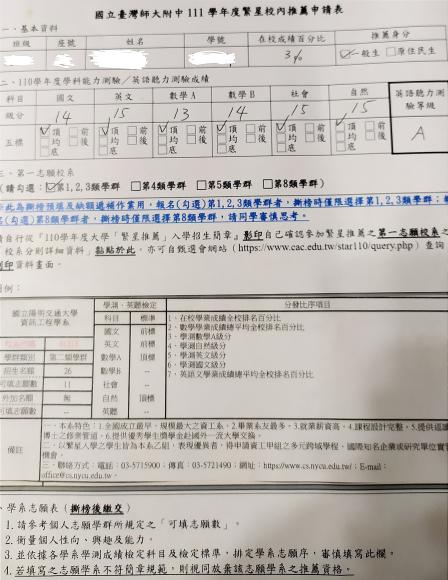 國立臺灣師大附中 111 學年度繁星校內推薦申請表
一、基本資料
班級 座號 姓名 學號 在校成績百分比 推薦身分
3% ☑一般生 □原住民生
二、110學年度學科能力測驗／英語聽力測驗成績
科目 國文 英文 數學A 數學B 社會 自然 英語聽力測驗等級
級分 14 15 13 14 15 15 A
五標 ☑頂 □前 □均 □後 □底
三、第一志願校系
(請勾選：☑第1,2,3類學群 □第4類學群 □第5類學群 □第8類學群)
※此為撕榜預填及缺額遞補作業用，報名(勾選)第1,2,3類學群者，撕榜時僅限選擇第1,2,3類學群；報
名(勾選)第8類學群者，撕榜時僅限選擇第8類學群，請同學審慎思考。
請自行從「110學年度大學「繁星推薦」入學招生簡章」影印自己確認參加繁星推薦之第一志願校系之
「校系分則詳細資料」黏貼於此，亦可自甄選會網站(https://www.cac.edu.tw/star110/query.php)查詢
列印資料畫面。
範例：
國立陽明交通大學
資訊工程學系
學測、英聽檢定
分發比序項目
科目 標準
國文 前標
英文 前標
數學A 頂標
數學B --
社會 --
自然 頂標
英聽 --
1、在校學業成績全校排名百分比
2、數學學業成績總平均全校排名百分比
3、學測數學A級分
4、學測自然級分
5、學測英文級分
6、學測國文級分
7、英語文學業成績總平均全校排名百分比
學群類別 第二類學群
招生名額 26
可填志願數 11
外加名額 無
可填志願數
備註
一、本系特色：1.全國成立最早、規模最大之資工系。2.畢業系友最多。3.就業薪資高。4.課程設計完整。5.提供逕讀
博士之修業管道。6.提供優秀學生獎學金赴國外一流大學交換。
二、以繁星入學之學生皆為本系乙組，表現優異者，得申請資工甲組之多元跨域學程、國際知名企業或研究單位實習
機會。
三、聯絡方式：電話：03-5715900；傳真：03-5721490；網址：https://www.cs.nycu.edu.tw/；E-mail：
office@cs.nycu.edu.tw.
、學系志願表（撕榜後繳交）
1.請參考個人志願學群所規定之「可填志願數」。
2.衡量個人性向、興趣及能力。
3.並依據各學系學測成績檢定科目及檢定標準，排定學系志願序，審慎填寫此欄。
4.若填寫之志願學系不符簡章規範，則視同放棄該志願學系之推薦資格。